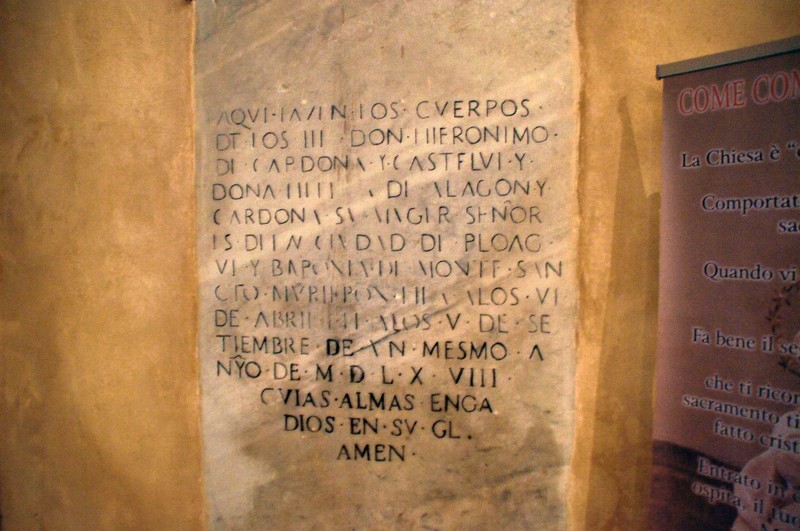 AQVI·IAZIN·IOS·CVERPOS·
DE IOS III·DON·HIERONIMO·
DI CARDONA·Y·CASTELVI·Y·
DONA DI ALAGON·Y
CARDONA·SV MVGIR SENOR
IS·DI LA CIVDAD DI PLOAG·
VI·Y BARONIA·DI MONTE·SAN
CTO· ALOS·VI
DE·ABRIL ALOS·V·DE·SE
TIEMBRE·DE·VN·MESMO·A
NYO·DE·M·D·L·X·VIII·
CVIAS·ALMAS ENGA
DIOS·EN·SV·GL.
AMEN·
COME CON
La Chiesa è "
Comportat
sa
Quando vi
Fa bene il se
che ti ricor
sacramento ti
fatto crist
Entrato in
ospita, il tu